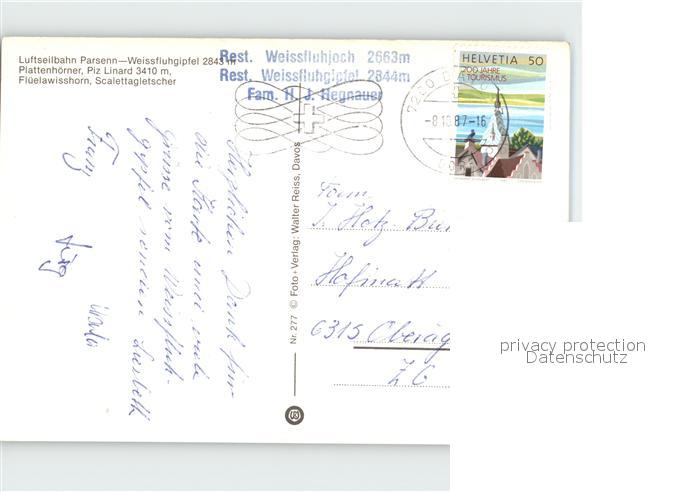 Luftseilbahn Parsenn—Weissfluhgipfel 2843 m
Plattenhörner, Piz Linard 3410 m,
Flüelawisshorn, Scalettagletscher
Rest. Weissfluhjoch 2663m
Rest. Weissfluhgipfel 2844m
Fam. H. J. Hegnauer
HELVETIA 50
200 JAHRE
TOURISMUS
7260 DAVOS
-8.10.87-16
Herzlichen Dank für
die Karte und viele
Grüsse vom Weissfluh-
gipfel senden Liesbeth
Franz
Nr. 277 © Foto+Verlag: Walter Reiss, Davos
Fam.
J. Hotz
Hofmatt
6315 Oberäg
ZG
privacy protection
Datenschutz